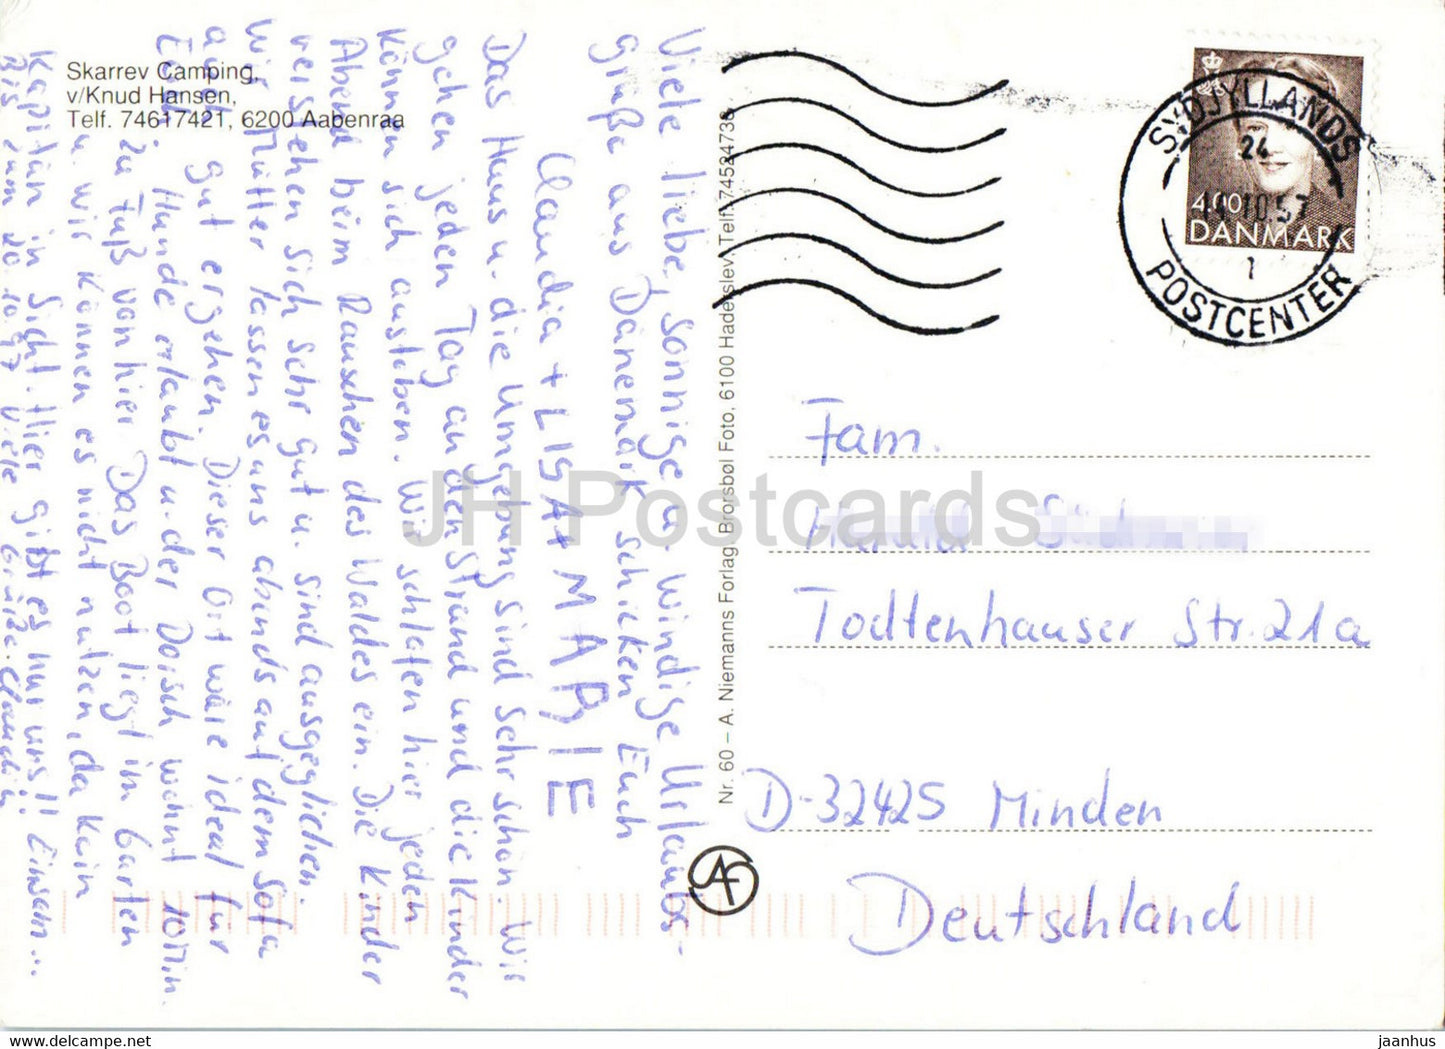 Skarrev Camping,
v/Knud Hansen,
Telf. 74617421, 6200 Aabenraa
Viele liebe, sonnige u. windige Urlaubs-
grüße aus Dänemark schicken Euch
Claudia + LISA + MARIE
Das Haus u. die Umgebung sind sehr schön. Wir
gehen jeden Tag an den Strand und die Kinder
können sich austoben. Wir schlafen hier jeden
Abend beim Rauschen des Waldes ein. Die Kinder
verstehen sich sehr gut u. sind ausgeglichen.
Wir Mütter lassen es uns abends auf dem Sofa
auch gut ergehen. Dieser Ort wäre ideal für
Euch, Hunde erlaubt u. der wohnt 10 min.
zu Fuß von hier. Das Boot liegt im Garten
u. wir können es nicht nutzen, da kein
Kapitän in Sicht. Hier gibt es nur uns!! Einsam...
Bis zum 20.10.97 Viele Grüße Claudia
Nr. 60 – A. Niemanns Forlag. Brorsbøl Foto, 6100 Haderslev. Telf. 74524738
SYDJYLLANDS
24
10.57
1
POSTCENTER
4.00
DANMARK
Fam.
Harald
Todtenhauser Str. 21a
D-32425 Minden
Deutschland
JH Postcards
https://www.delcampe.net
jaanhus